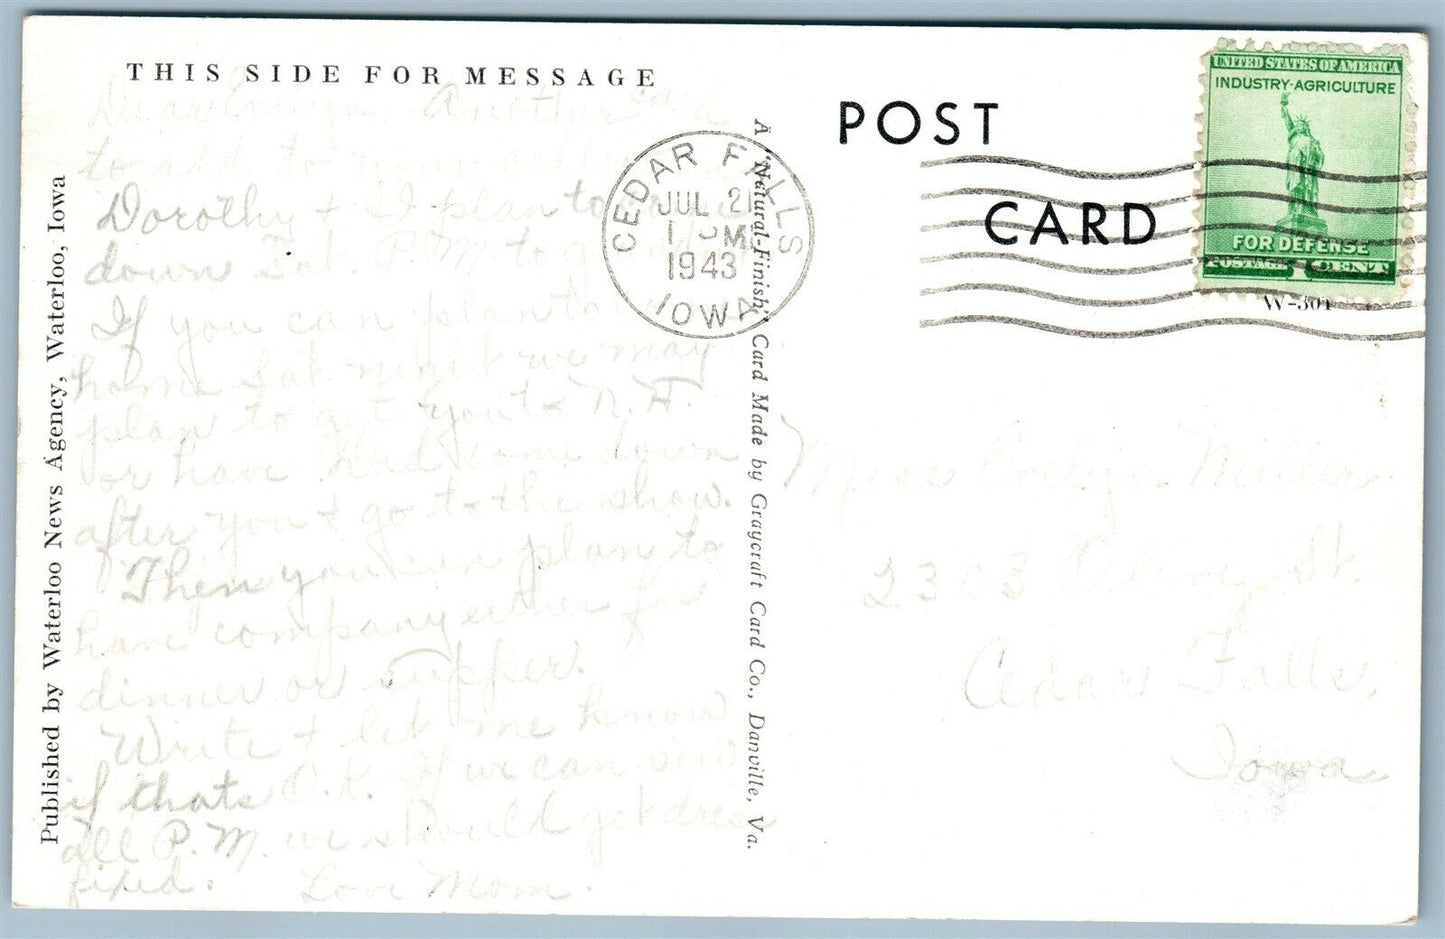 THIS SIDE FOR MESSAGE
Dear Evelyn, Another card
to add to your
Dorothy + I plan to
down Sat. P.M. to
If you can plan to
home Sat. night we may
plan to get you to N.H.
or have Dad come down
after you + go to the show.
Then you can plan to
have company either for
dinner or supper.
Write + let me know
if thats O.K. If we can sew
all P.M. we should get dress
fixed. Love Mom.
Published by Waterloo News Agency, Waterloo, Iowa
A "Natural-Finish" Card Made by Graycraft Card Co., Danville, Va.
CEDAR FALLS
JUL 21
1943
IOWA
POST
CARD
UNITED STATES OF AMERICA
INDUSTRY-AGRICULTURE
FOR DEFENSE
POSTAGE 1 CENT
W-301
Miss Evelyn Miller
2303 Olive St.
Cedar Falls,
Iowa